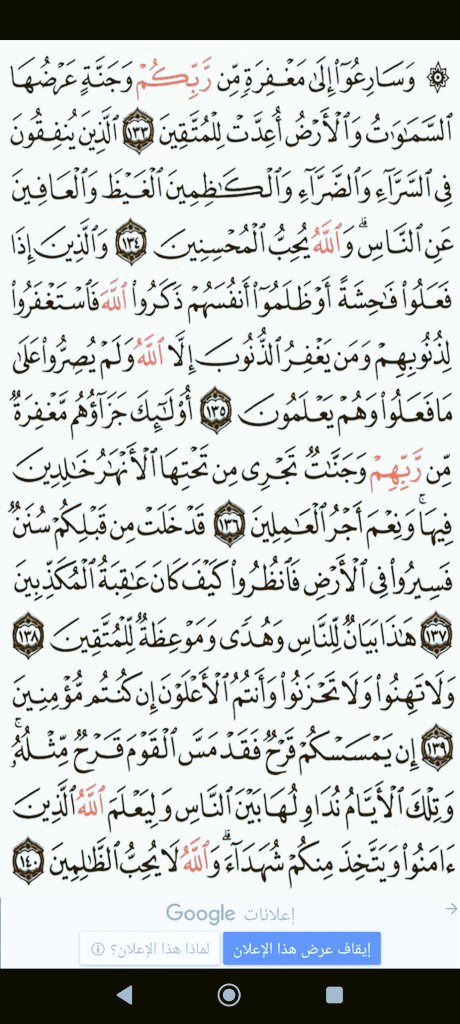 ۞ وَسَارِعُوٓا۟ إِلَىٰ مَغْفِرَةٍ مِّن رَّبِّكُمْ وَجَنَّةٍ عَرْضُهَا
السَّمَٰوَٰتُ وَالْأَرْضُ أُعِدَّتْ لِلْمُتَّقِينَ ١٣٣ الَّذِينَ يُنفِقُونَ
فِى السَّرَّآءِ وَالضَّرَّآءِ وَالْكَٰظِمِينَ الْغَيْظَ وَالْعَافِينَ
عَنِ النَّاسِ ۗ وَاللَّهُ يُحِبُّ الْمُحْسِنِينَ ١٣٤ وَالَّذِينَ إِذَا
فَعَلُوا۟ فَٰحِشَةً أَوْ ظَلَمُوٓا۟ أَنفُسَهُمْ ذَكَرُوا۟ اللَّهَ فَاسْتَغْفَرُوا۟
لِذُنُوبِهِمْ وَمَن يَغْفِرُ الذُّنُوبَ إِلَّا اللَّهُ وَلَمْ يُصِرُّوا۟ عَلَىٰ
مَا فَعَلُوا۟ وَهُمْ يَعْلَمُونَ ١٣٥ أُو۟لَٰٓئِكَ جَزَآؤُهُم مَّغْفِرَةٌ
مِّن رَّبِّهِمْ وَجَنَّٰتٌ تَجْرِى مِن تَحْتِهَا الْأَنْهَٰرُ خَٰلِدِينَ
فِيهَا ۚ وَنِعْمَ أَجْرُ الْعَٰمِلِينَ ١٣٦ قَدْ خَلَتْ مِن قَبْلِكُمْ سُنَنٌ
فَسِيرُوا۟ فِى الْأَرْضِ فَانظُرُوا۟ كَيْفَ كَانَ عَٰقِبَةُ الْمُكَذِّبِينَ
١٣٧ هَٰذَا بَيَانٌ لِّلنَّاسِ وَهُدًى وَمَوْعِظَةٌ لِّلْمُتَّقِينَ ١٣٨
وَلَا تَهِنُوا۟ وَلَا تَحْزَنُوا۟ وَأَنتُمُ الْأَعْلَوْنَ إِن كُنتُم مُّؤْمِنِينَ
١٣٩ إِن يَمْسَسْكُمْ قَرْحٌ فَقَدْ مَسَّ الْقَوْمَ قَرْحٌ مِّثْلُهُۥ ۚ
وَتِلْكَ الْأَيَّامُ نُدَاوِلُهَا بَيْنَ النَّاسِ وَلِيَعْلَمَ اللَّهُ الَّذِينَ
ءَامَنُوا۟ وَيَتَّخِذَ مِنكُمْ شُهَدَآءَ ۗ وَاللَّهُ لَا يُحِبُّ الظَّٰلِمِينَ ١٤٠
إعلانات Google
إيقاف عرض هذا الإعلان لماذا هذا الإعلان؟